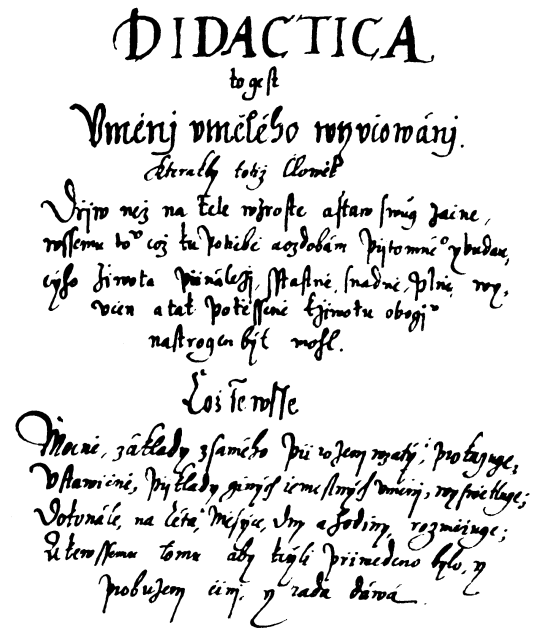 DIDACTICA
to gest
Vměnj vmělého wyvčowánj.
Kterakby totiž Cžlowěk
Dřjw než na těle wzroste a staw swůg začne,
wssemu to což ku potřebě a ozdobám přjtomné° y budau,
cýho žiwota přináležj, sstiastně, snadně, plně, wy,
včen a tak potěsseně k žiwotu obogj°
nastrogen být mohl.
Což se wsse
Mocně, základy z samého přirozenj wzatými, prokazuge,
Vstawičně, přjklady giných řemeslných vměnj, wyswětluge;
Dokonále, na léta, měsýce, dny a hodiny, rozměřuge;
A k te wssemu tomu aby k cýli přiwedeno bylo, y
probuzenj činj, y rada dáwá.